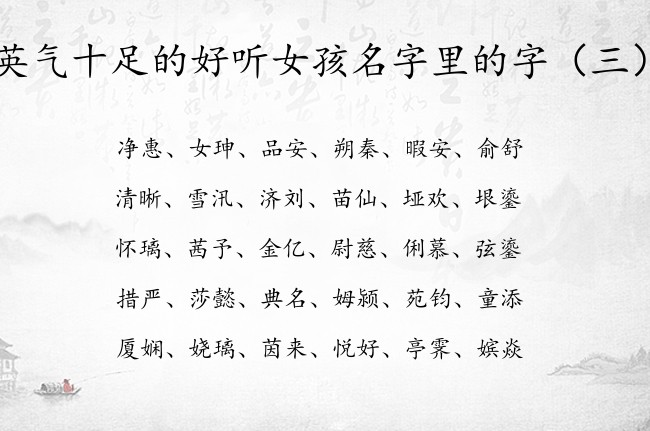 英气十足的好听女孩名字里的字（三）
净惠、女珅、品安、朔秦、暇安、俞舒
清晰、雪汛、济刘、苗仙、垭欢、垠鎏
怀璃、茜予、金亿、尉慈、俐慕、弦鎏
措严、莎懿、典名、姆颍、苑钧、童添
厦娴、娆璃、茵来、悦好、亭霁、嫔焱